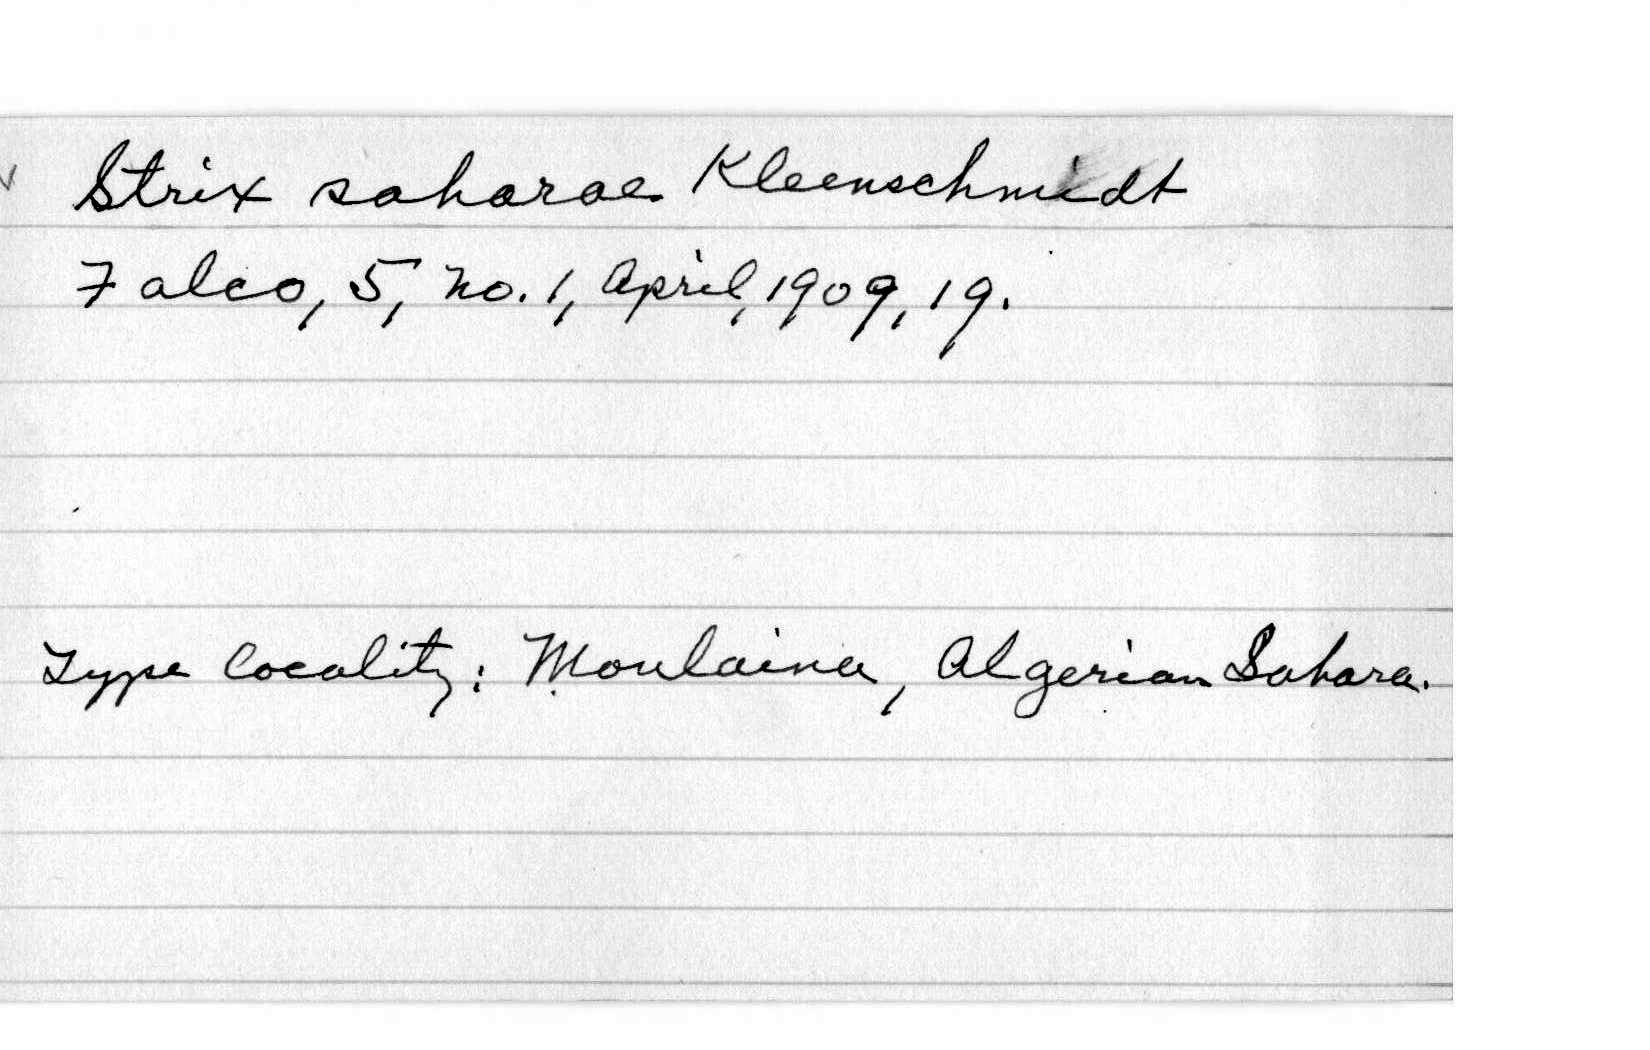 Strix saharae Kleinschmidt
Falco, 5, no. 1, April, 1909, 19.
Type locality: Moulaina, Algerian Sahara.